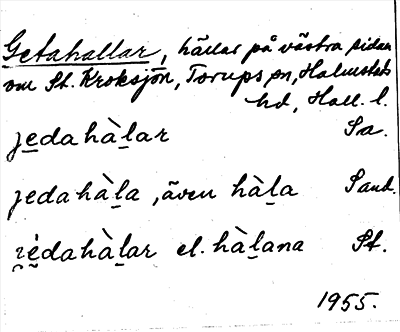 Getahallar, hällar på västra sidan
om St. Kroksjön, Torups sn, Halmstads
hd, Hall. l.
jedahàlar Sa.
jedahàla, även hàla Sand.
jédahàlar el. hàlana St.
1955.